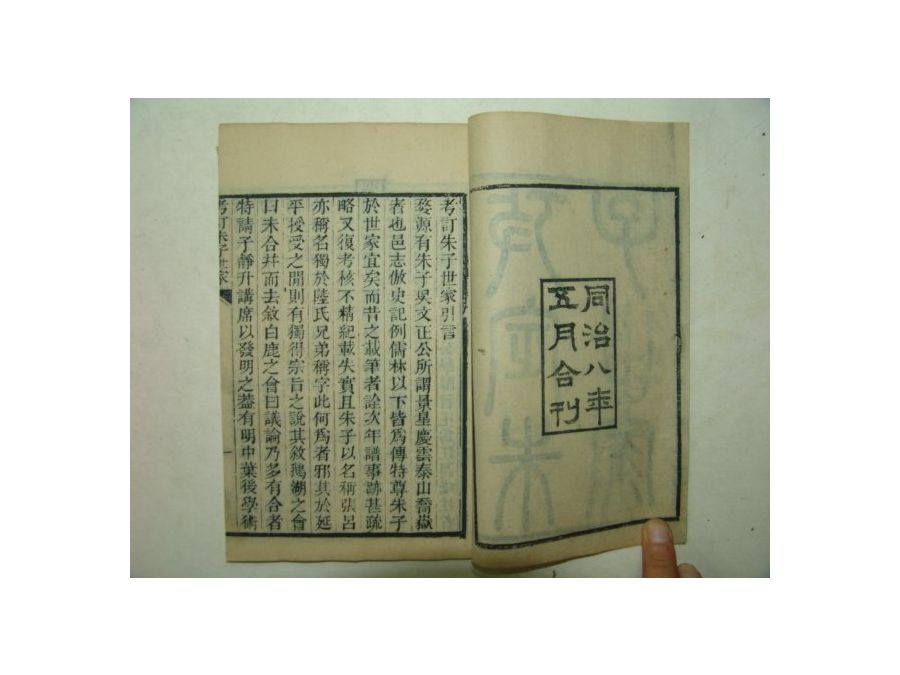 同治八年
五月合刊
考訂朱子世家引言
婺源有朱子吳文正公所謂景星慶雲泰山喬嶽
者也邑志倣史記例儒林以下皆爲傳特尊朱子
於世家宜矣而昔之載筆者詮次年譜事跡甚疏
略又復考核不精紀載失實且朱子以名稱張呂
亦稱名獨於陸氏兄弟稱字此何爲者邪其於延
平授受之閒則有獨得宗旨之說其敘鵝湖之會
曰未合并而去敘白鹿之會曰議論乃多有合者
特請子靜升講席以發明之葢有明中葉後學術
考訂朱子世家